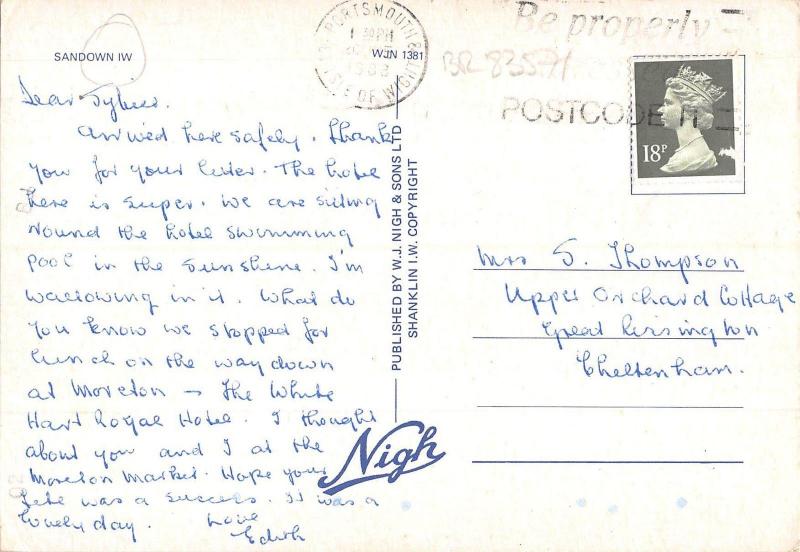 SANDOWN IW
WJN 1381
PORTSMOUTH &
ISLE OF WIGHT
1 30PM
Be properly
POSTCODE IT
BR 83571
18P
Dear Sybil.
Arrived here safely. Thank
you for your letter. The hotel
here is super. We are sitting
round the hotel swimming
pool in the sunshine. I'm
wallowing in it. What do
you know we stopped for
lunch on the way down
at Moreton → The White
Hart Royal Hotel. I thought
about you and I at the
Moreton Market. Hope your
fete was a success. It was a
lovely day. Love
Edith
PUBLISHED BY W.J. NIGH & SONS LTD
SHANKLIN I.W. COPYRIGHT
Nigh
Mrs S. Thompson
Upper Orchard Cottage
Great Rissington
Cheltenham.